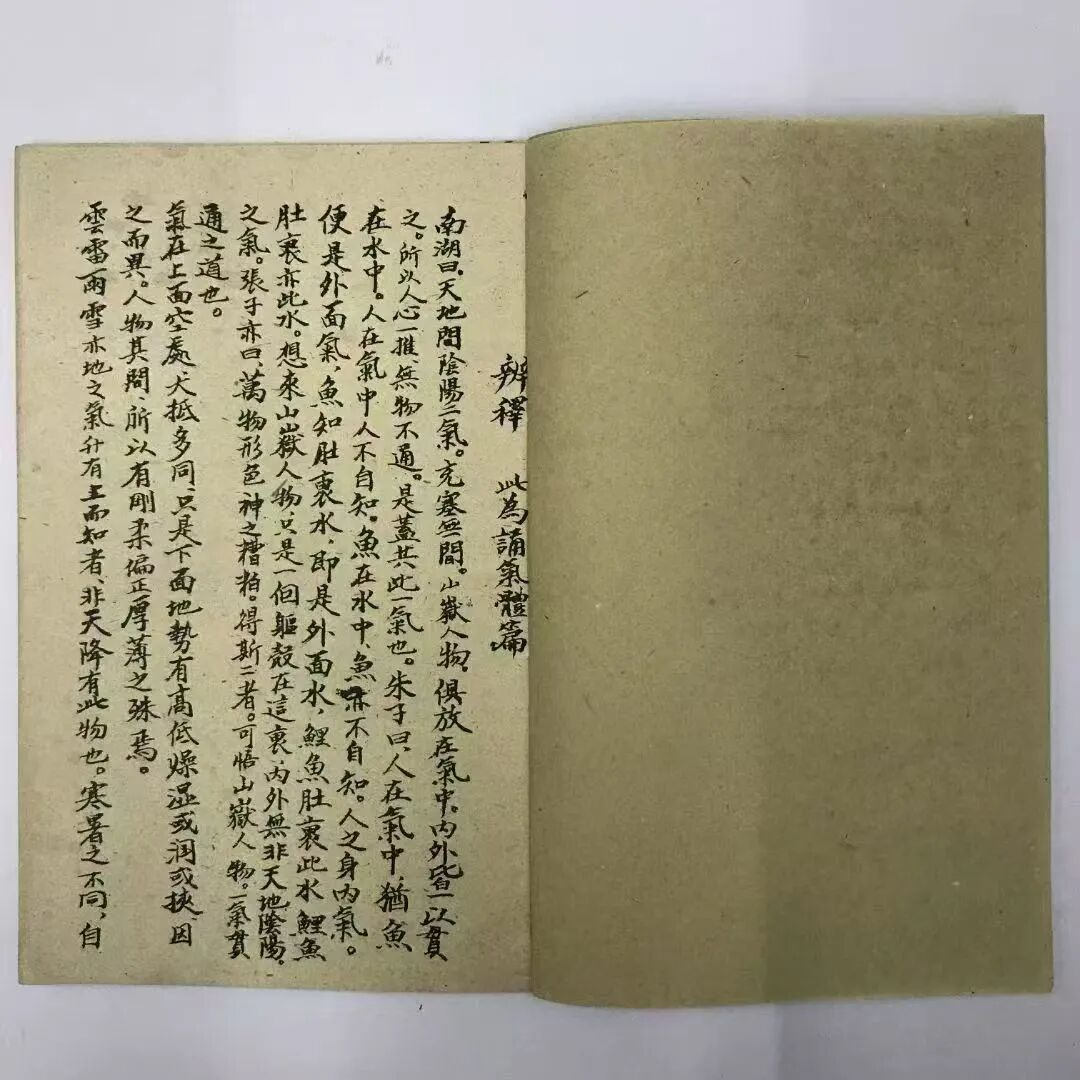 辨釋　此為誦氣體篇
南湖曰、天地間陰陽二氣。充塞無間。山嶽人物。俱放在氣中。内外皆一以貫
之。所以人心一推、無物不通。是蓋共此一氣也。朱子曰、人在氣中、猶魚
在水中。人在氣中人不自知。魚在水中、魚亦不自知。人之身内氣。
便是外面氣，魚知肚裏水，即是外面水，鯉魚肚裏此水鯉魚
肚裏亦此水。想來山嶽人物、只是一個軀殼在這裏、内外無非天地陰陽。
之氣。張子亦曰、萬物形色神之糟粕。得斯二者。可悟山嶽人物。一氣貫
通之道也。
氣在上面空處、大抵多同、只是下面地勢有高低燥湿或润或挾、因
之而異。人物其間、所以有剛柔偏正厚薄之殊焉。
雲雷雨雪亦地之氣升有上而知者、非天降有此物也。寒署之不同、自